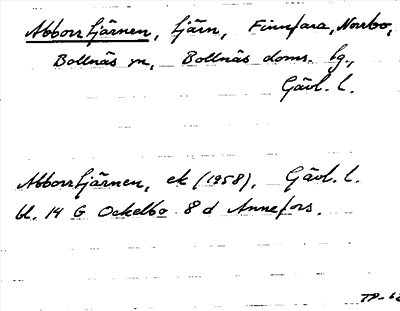 Abborrtjärnen, tjärn, Finnfara, Norrbo,
Bollnäs sn, Bollnäs doms. lg.,
Gävl. l.
Abborrtjärnen, ek (1958), Gävl. l.
bl. 14 G Ockelbo 8 d Annefors.